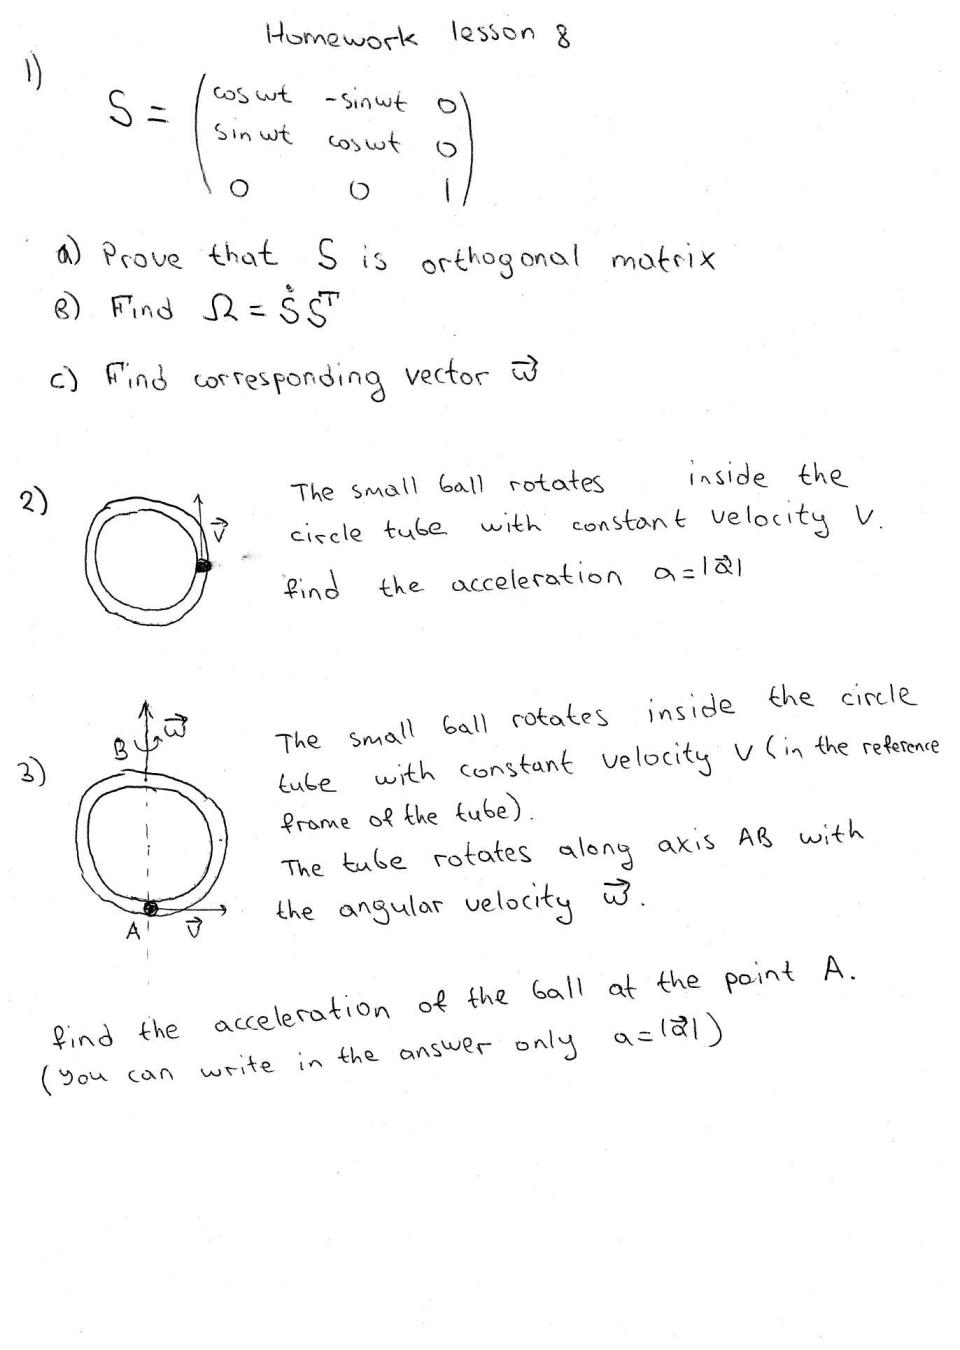 Homework lesson 8
1)
S = (cos wt -sin wt 0
sin wt cos wt 0
0 0 1)
a) Prove that S is orthogonal matrix
B) Find Ω = Ṡ Sᵀ
c) Find corresponding vector w⃗
2)
The small ball rotates inside the
circle tube with constant velocity V.
v⃗
find the acceleration a = |a⃗|
3)
B w⃗
The small ball rotates inside the circle
tube with constant velocity v (in the reference
frame of the tube).
The tube rotates along axis AB with
the angular velocity w⃗.
A v⃗
find the acceleration of the ball at the point A.
(you can write in the answer only a = |a⃗|)